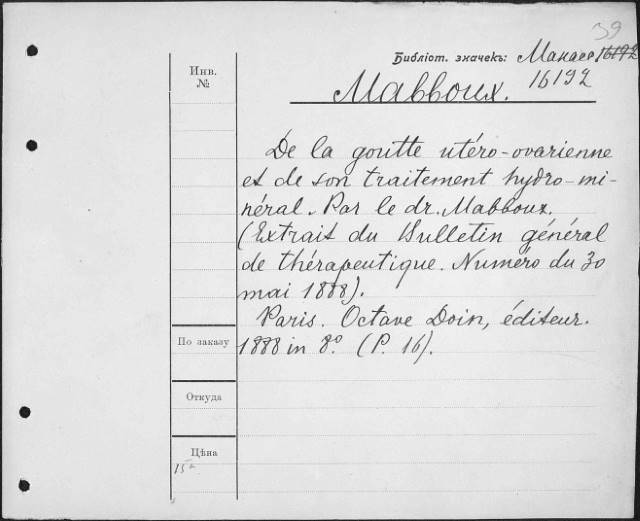 39
Библіот. значекъ: Манасе 16192
16192
Инв.
№
Mabboux.
De la goutte utéro-ovarienne
et de son traitement hydro-mi-
néral. Par le dr. Mabboux.
(Extrait du Bulletin général
de thérapeutique. Numéro du 30
mai 1888).
Paris. Octave Doin, éditeur.
1888 in 8º. (P. 16).
По заказу
Откуда
Цѣна
15